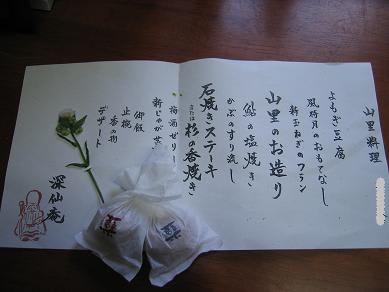 山里料理
よもぎ豆腐
風待月のおもてなし
新玉ねぎのフラン
山里のお造り
鮎の塩焼き
かぶのすり流し
石焼きステーキ
または 杉の香焼き
梅酒ゼリー
新じゃが
御飯
止椀
香の物
デザート
深仙庵